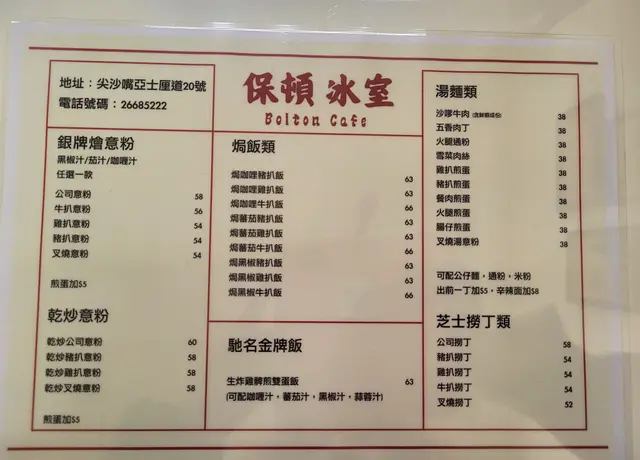 地址：尖沙嘴亞士厘道20號
電話號碼：26685222
保頓冰室
Bolton Cafe
銀牌燴意粉
黑椒汁/茄汁/咖喱汁
任選一款
公司意粉 58
牛扒意粉 56
雞扒意粉 54
豬扒意粉 54
叉燒意粉 54
煎蛋加$5
乾炒意粉
乾炒公司意粉 60
乾炒豬扒意粉 58
乾炒雞扒意粉 58
乾炒叉燒意粉 58
煎蛋加$5
焗飯類
焗咖喱豬扒飯 63
焗咖喱雞扒飯 63
焗咖喱牛扒飯 66
焗蕃茄豬扒飯 63
焗蕃茄雞扒飯 63
焗蕃茄牛扒飯 66
焗黑椒豬扒飯 63
焗黑椒雞扒飯 63
焗黑椒牛扒飯 66
馳名金牌飯
生炸雞髀煎雙蛋飯 63
(可配咖喱汁，蕃茄汁，黑椒汁，蒜蓉汁)
湯麵類
沙嗲牛肉 38
五香肉丁 38
火腿通粉 38
雪菜肉絲 38
雞扒煎蛋 38
豬扒煎蛋 38
餐肉煎蛋 38
火腿煎蛋 38
腸仔煎蛋 38
叉燒湯意粉 38
可配公仔麵，通粉，米粉
出前一丁加$5，辛辣面加$8
芝士撈丁類
公司撈丁 58
豬扒撈丁 54
雞扒撈丁 54
牛扒撈丁 54
叉燒撈丁 52